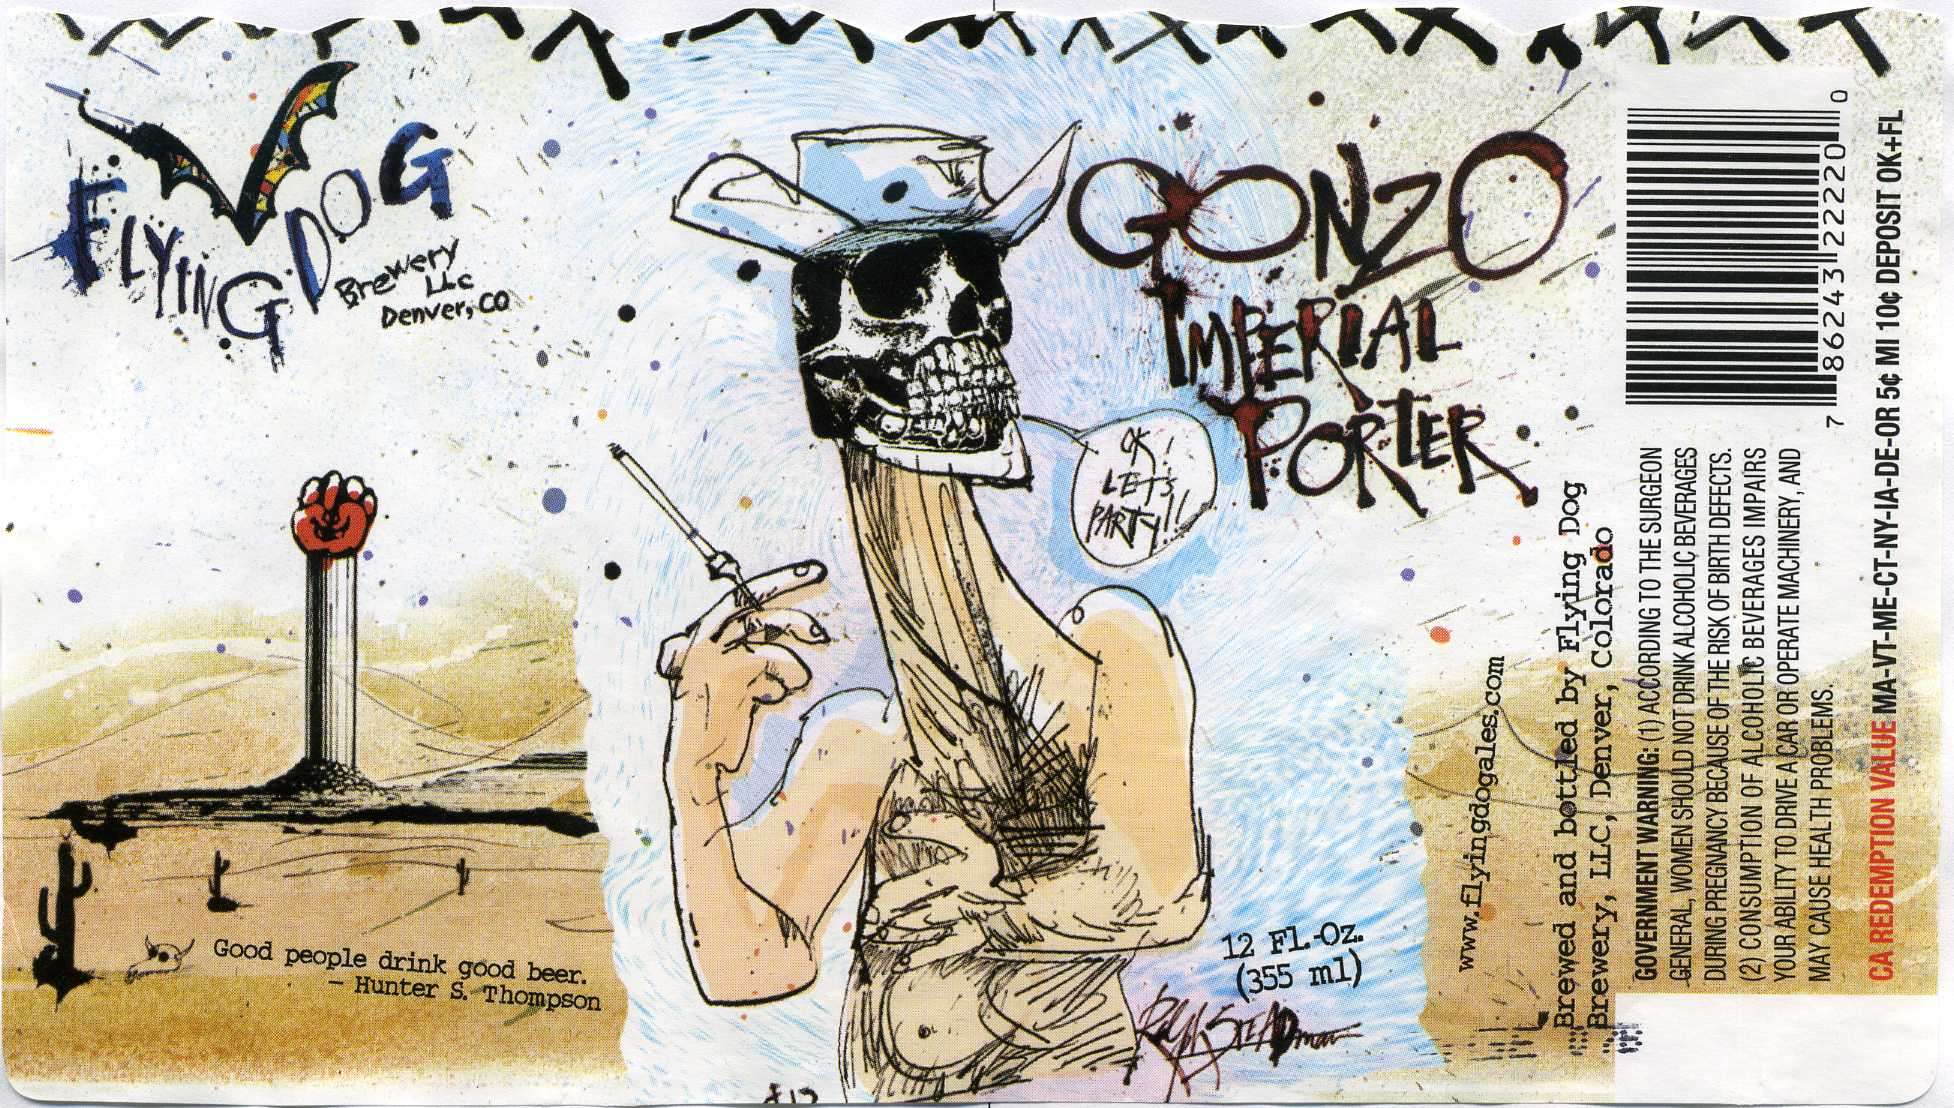 FLYING DOG
Brewery
LLC
Denver, CO
Good people drink good beer.
— Hunter S. Thompson
OK!
LETS
PARTY!!
GONZO
IMPERIAL
PORTER
12 Fl.-Oz.
(355 ml)
Ralph STEADman
www.flyingdogales.com
Brewed and bottled by Flying Dog
Brewery, LLC, Denver, Colorado
7 86243 22220 0
GOVERNMENT WARNING: (1) ACCORDING TO THE SURGEON
GENERAL, WOMEN SHOULD NOT DRINK ALCOHOLIC BEVERAGES
DURING PREGNANCY BECAUSE OF THE RISK OF BIRTH DEFECTS.
(2) CONSUMPTION OF ALCOHOLIC BEVERAGES IMPAIRS
YOUR ABILITY TO DRIVE A CAR OR OPERATE MACHINERY, AND
MAY CAUSE HEALTH PROBLEMS.
CA REDEMPTION VALUE MA-VT-ME-CT-NY-IA-DE-OR 5¢ MI 10¢ DEPOSIT OK+FL